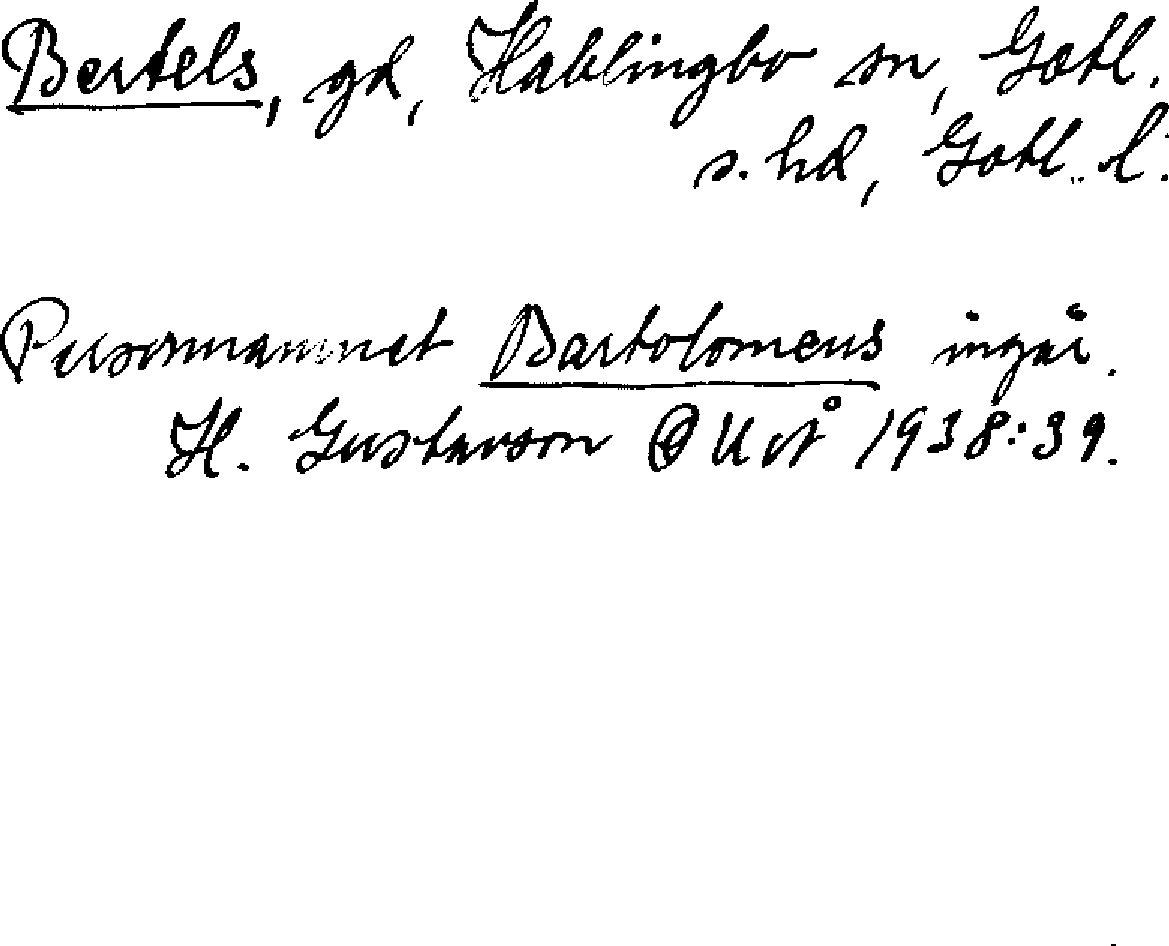 Bertels, gd, Hablingbo sn, Gotl.
s. hd, Gotl. l.
Personnamnet Bartolomeus ingår.
H. Gustavson GUÅ 1938:39.